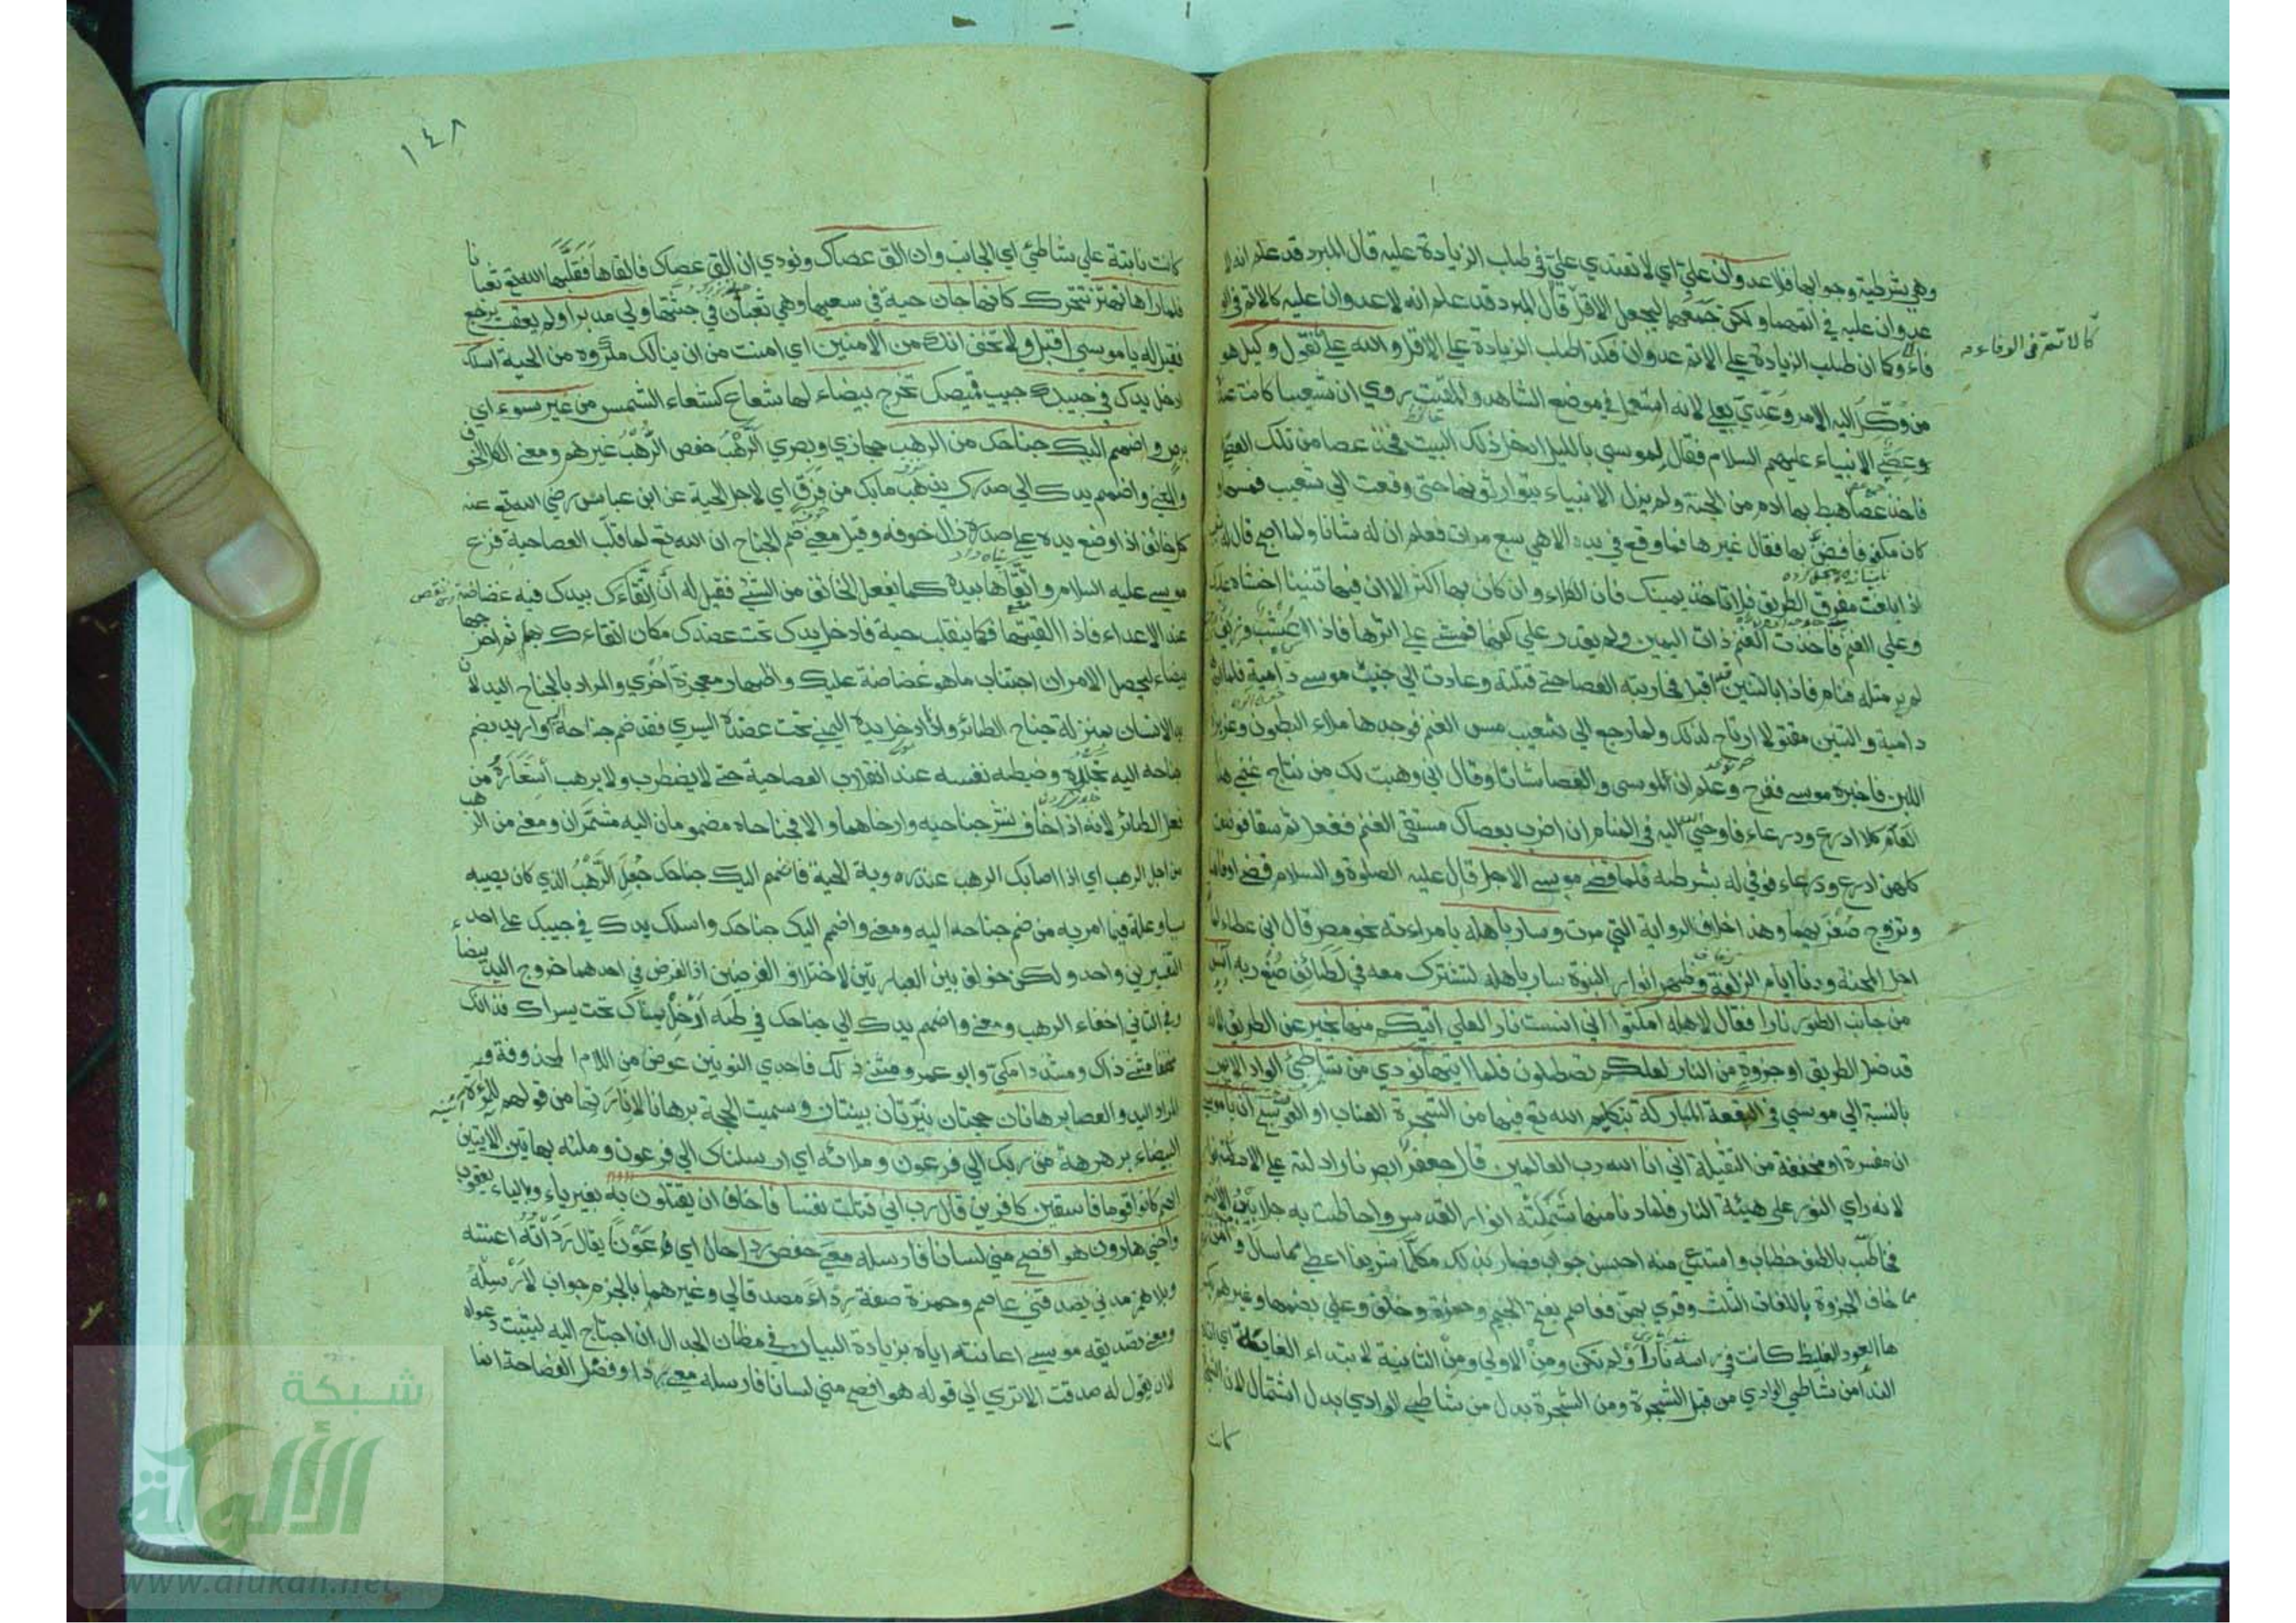 وهي شرطية وجوابها فلا عدوان علي اي لا تعتدي علي في طلب الزيادة عليه قال المبرد قد علم انه لا
عدوان عليه في ولكن جمعهما ليجعل الاقل قال المبرد قد علم انه لا عدوان عليه كالاتم في
كالاتم في الوفاء
فاء وكما ان طلب الزيادة علي الاتم عدوان فكذا طلب الزيادة علي الاقل والله علي ما نقول وكيل هو
من وكل اليه الامر وعدي بعلي لانه استعمل في موضع الشاهد والمقيت روي ان شعيبا كانت عنده
عصي الانبياء عليهم السلام فقال لموسي بالليل ادخل ذلك البيت فخذ عصا من تلك العصي
فاخذ عصا هبط بها ادم من الجنة ولم يزل الانبياء يتوارثونها حتي وقعت الي شعيب فمسها و
كان مكفوفا فضن بها فقال غيرها فما وقع في يده الا هي سبع مرات فعلم ان له شانا ولما اصبح قال له
اذا بلغت مفرق الطريق فلا تاخذ يمينك فان الكلاء وان كان بها اكثر الا ان فيها تنينا اخشاه عليك
وعلي الغنم فاخذت الغنم ذات اليمين ولم يقدر علي كفها فمشي علي اثرها فاذا عشب وريف
لم ير مثله فنام فاذا بالتنين قد اقبل فحاربته العصا حتي قتلته وعادت الي جنب موسي دامية فلما
دامية والتنين مقتولا ارتاح لذلك ولما رجع الي شعيب مس الغنم فوجدها ملاء البطون وغزيرة
اللبن فاخبره موسي ففرح وعلم ان لموسي والعصا شانا وقال اني وهبت لك من نتاج غنمي هذا
العام كل ادرع ودرعاء فاوحي اليه في المنام ان اضرب بعصاك مستقي الغنم ففعل ثم سقا فوضعت
كلهن ادرع ودرعاء فوفي له بشرطه فلما قضي موسي الاجل قال عليه الصلوة والسلام قضي اوفاهما
وتزوج صغريهما وهذا خلاف الرواية التي مرت وسار باهله بامراءته نحو مصر قال ابن عطاء لما
اجل المحنة ودنا ايام الزلفة وظهر انوار النبوة سار باهله لتشترك معه في لطائف صنع ربه آنس
من جانب الطور نارا فقال لاهله امكثوا اني انست نارا لعلي اتيكم منها بخبر عن الطريق لانه
قد ضل الطريق او جزوة من النار لعلكم تصطلون فلما اتيها نودي من شاطئ الواد الايمن
بالنسبة الي موسي في البقعة المباركة بتكليم الله تع فيها من الشجرة العناب او العوسج ان يا موسي
ان مفسرة او مخففة من الثقيلة اني انا الله رب العالمين قال جعفر ابصر نارا دلته علي الانوار
لانه راي النور علي هيئة النار فلما دنا منها شملته انوار القدس واحاطت به جلابيب الانس
فخاطب بالطف خطاب واستدعي منه احسن جواب فصار بذلك مكلما شريفا اعطي ما سال وامن
مما خاف الجزوة باللغات الثلث وقري بهن فعاصم بفتح الجيم وحمزة وخلف بضمها وغيرهم
ها العود الغليظ كانت في راسه نار او لم تكن ومن الاولي ومن الثانية لابتداء الغاية اي
الندا من شاطئ الوادي من قبل الشجرة ومن الشجرة بدل من شاطئ الوادي بدل اشتمال لان
كانت
١٤٨
كانت نابتة علي شاطئ اي الجانب وان الق عصاك ونودي ان الق عصاك فالقاها فقلبها الله تع ثعبانا
فلما راها تهتز تتحرك كانها جان حية في سعيها وهي ثعبان في جثتها ولي مدبرا ولم يعقب يرجع
فقيل له يا موسي اقبل ولا تخف انك من الامنين اي امنت من ان ينالك مكروه من الحية اسلك
ادخل يدك في جيبك جيب قميصك تخرج بيضاء لها شعاع كشعاع الشمس من غير سوء اي
برص واضمم اليك جناحك من الرهب حجازي وبصري الرهب حفص الرهب غيرهم ومعني الكل الخوف
والمعني واضمم يدك الي صدرك يذهب ما بك من فرق اي لاجل الحية عن ابن عباس رضي الله تع عنه
كل خائف اذا وضع يده علي صدره زال خوفه وقيل معني ضم الجناح ان الله تع لما قلب العصا حية فزع
موسي عليه السلام واتقاها بيده كما يفعل الخائف من الشئ فقيل له ان اتقاءك بيدك فيه غضاضة
عند الاعداء فاذا القيتها فكما ينقلب حية فادخل يدك تحت عضدك مكان اتقاءك بها ثم اخرجها
بيضاء ليحصل الامران اجتناب ما هو غضاضة عليك واظهار معجزة اخري والمراد بالجناح اليد لان
يد الانسان بمنزلة جناح الطائر واذا ادخل يده اليمني تحت عضده اليسري فقد ضم جناحه او اريد بضم
جناحه اليه تجلده وضبطه نفسه عند انقلاب العصا حية حتي لا يضطرب ولا يرهب استعارة من
فعل الطائر لانه اذا خاف نشر جناحيه وارخاهما والا فجناحاه مضمومان اليه مشمران ومعني من الرهب
من اجل الرهب اي اذا اصابك الرهب عند روية الحية فاضمم اليك جناحك جعل الرهب الذي كان يصيبه
سببا وعلة فيما امر به من ضم جناحه اليه ومعني واضمم اليك جناحك واسلك يدك في جيبك علي احد
التفسيرين واحد ولكن خولف بين العبارتين لاختلاف الغرضين اذ الغرض في احدهما خروج اليد بيضاء
وفي الثاني اخفاء الرهب ومعني واضمم يدك الي جناحك في طه ادخل يمناك تحت يسراك فذانك
مخففا مثني ذاك ومشددا مكي وابو عمرو مثني ذلك فاحدي النونين عوض من اللام المحذوفة و
المراد اليد والعصا برهانان حجتان نيرتان بينتان وسميت الحجة برهانا لانارتها من قولهم للمرءة
البيضاء برهرهة من ربك الي فرعون وملائه اي ارسلناك الي فرعون وملئه بهاتين الايتين
انهم كانوا قوما فاسقين كافرين قال رب اني قتلت نفسا فاخاف ان يقتلون به بغير ياء وبالياء يعقوب
واخي هارون هو افصح مني لسانا فارسله معي حفص ردا حال اي عونا يقال ردأته اعنته
وبلا همز مدني يصدقني عاصم وحمزة صفة ردءا مصدقا لي وغيرهما بالجزم جواب لارسله
ومعني تصديقه موسي اعانته اياه بزيادة البيان في مظان الجدال ان احتاج اليه ليثبت دعواه
لا ان يقول له صدقت الا تري الي قوله هو افصح مني لسانا فارسله معي ردا وفضل الفصاحة انما
شبكة
الألوكة
www.alukah.net